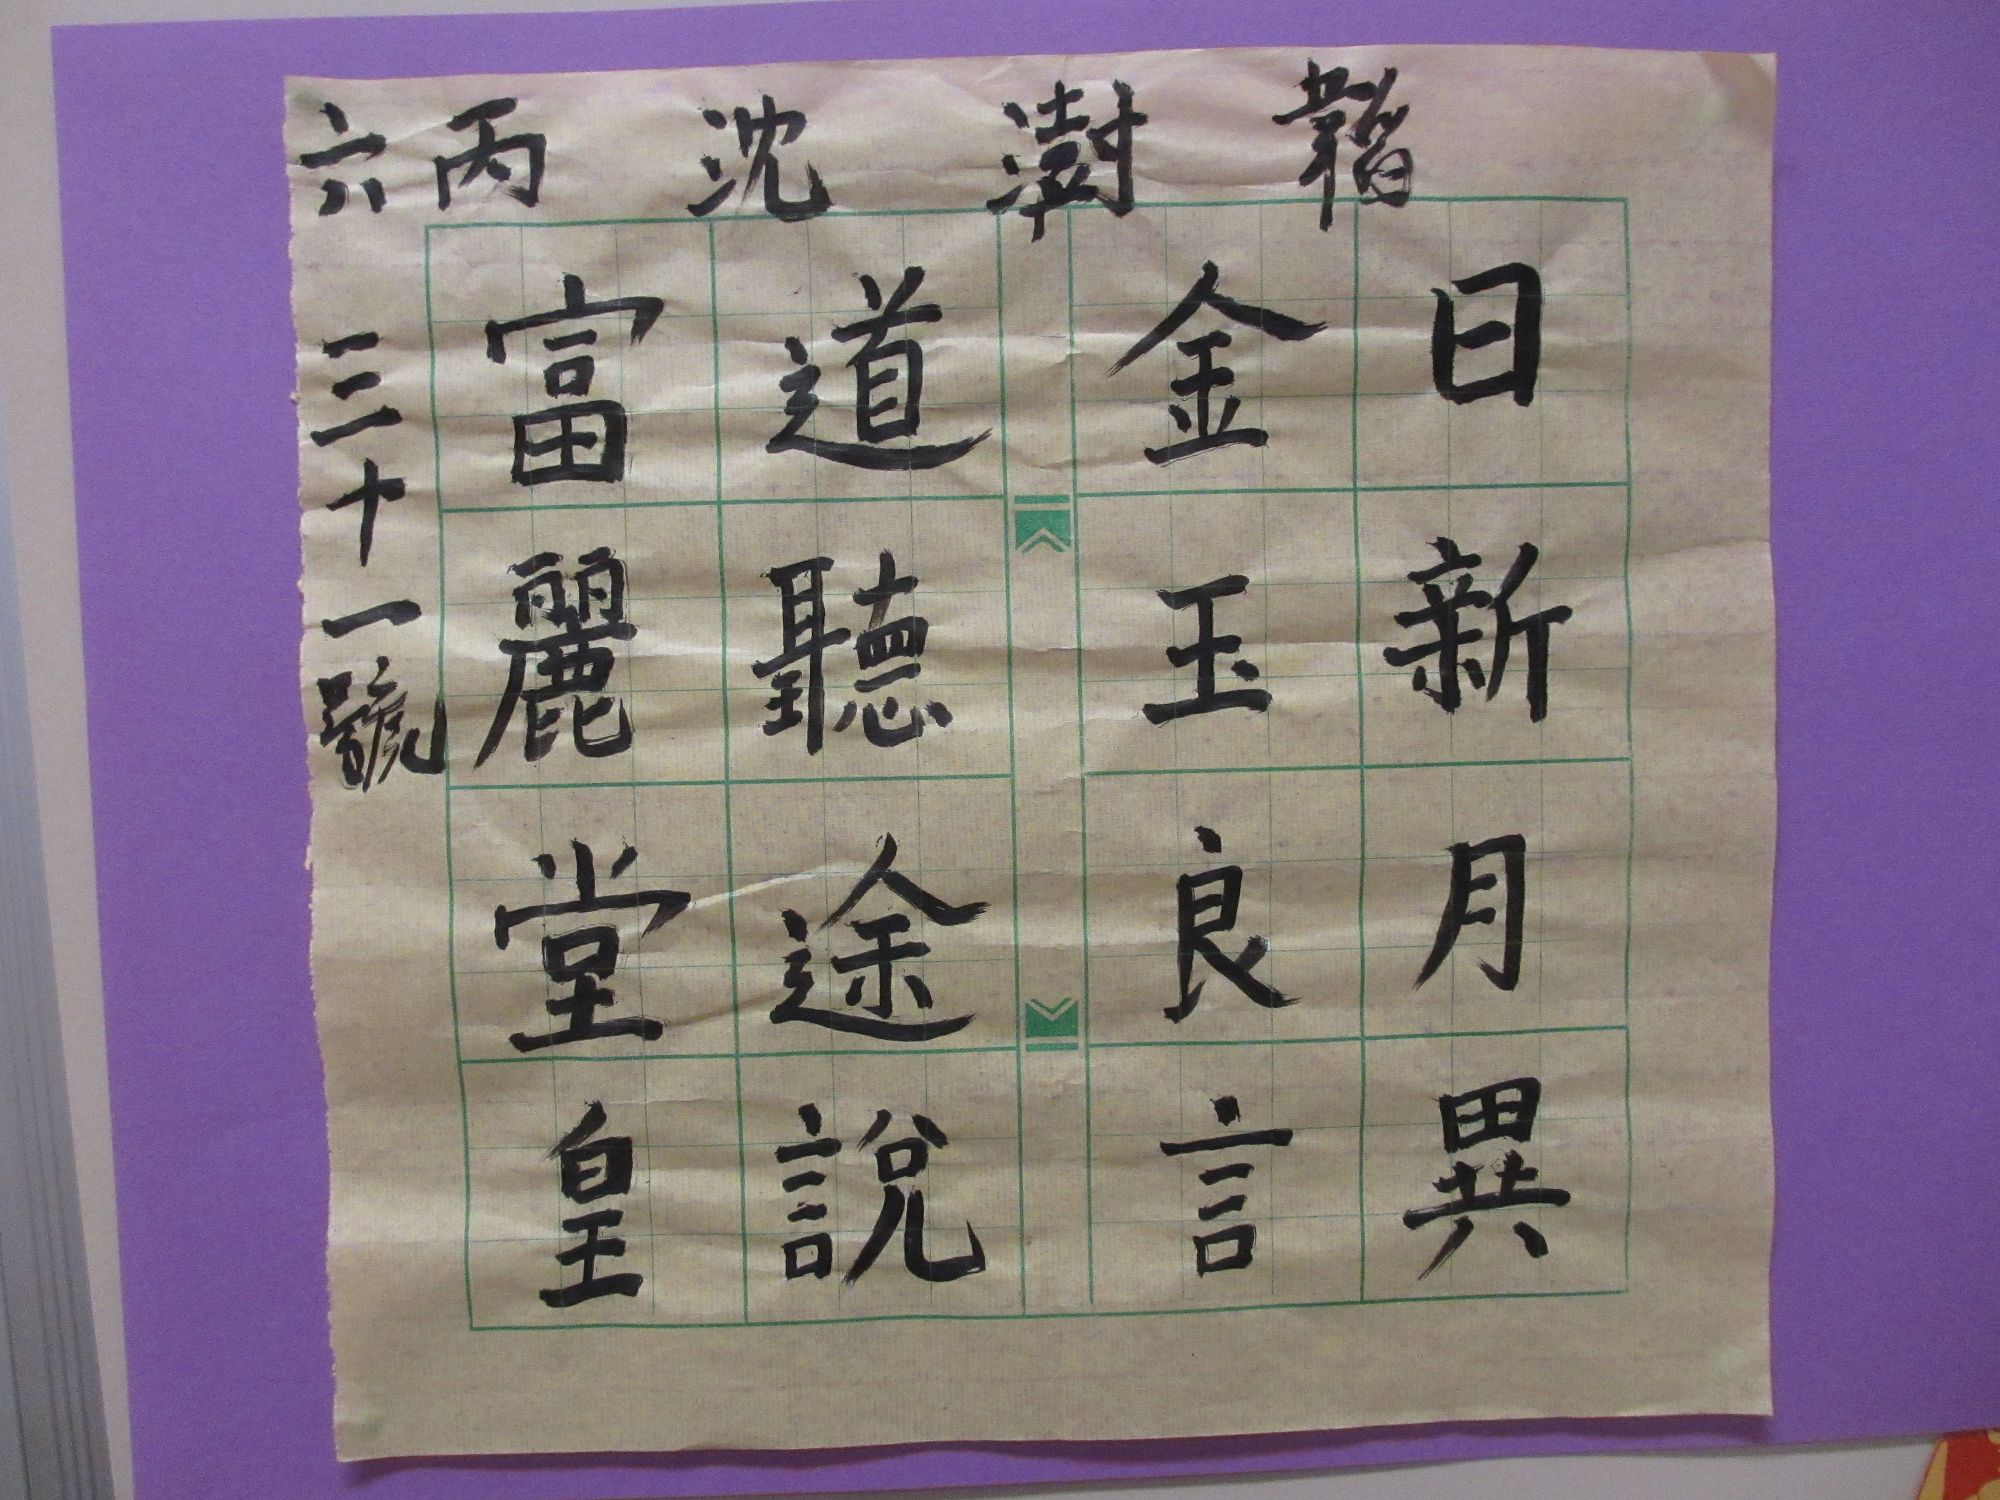 六丙 沈澍韜
三十一號
日新月異
金玉良言
道聽途說
富麗堂皇